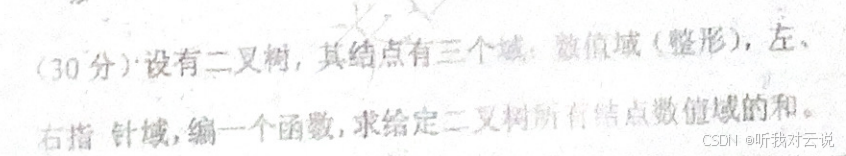 (30 分)设有二叉树，其结点有三个域：数值域(整形)，左、
右指 针域，编一个函数，求给定二叉树所有结点数值域的和。
CSDN @听我对云说